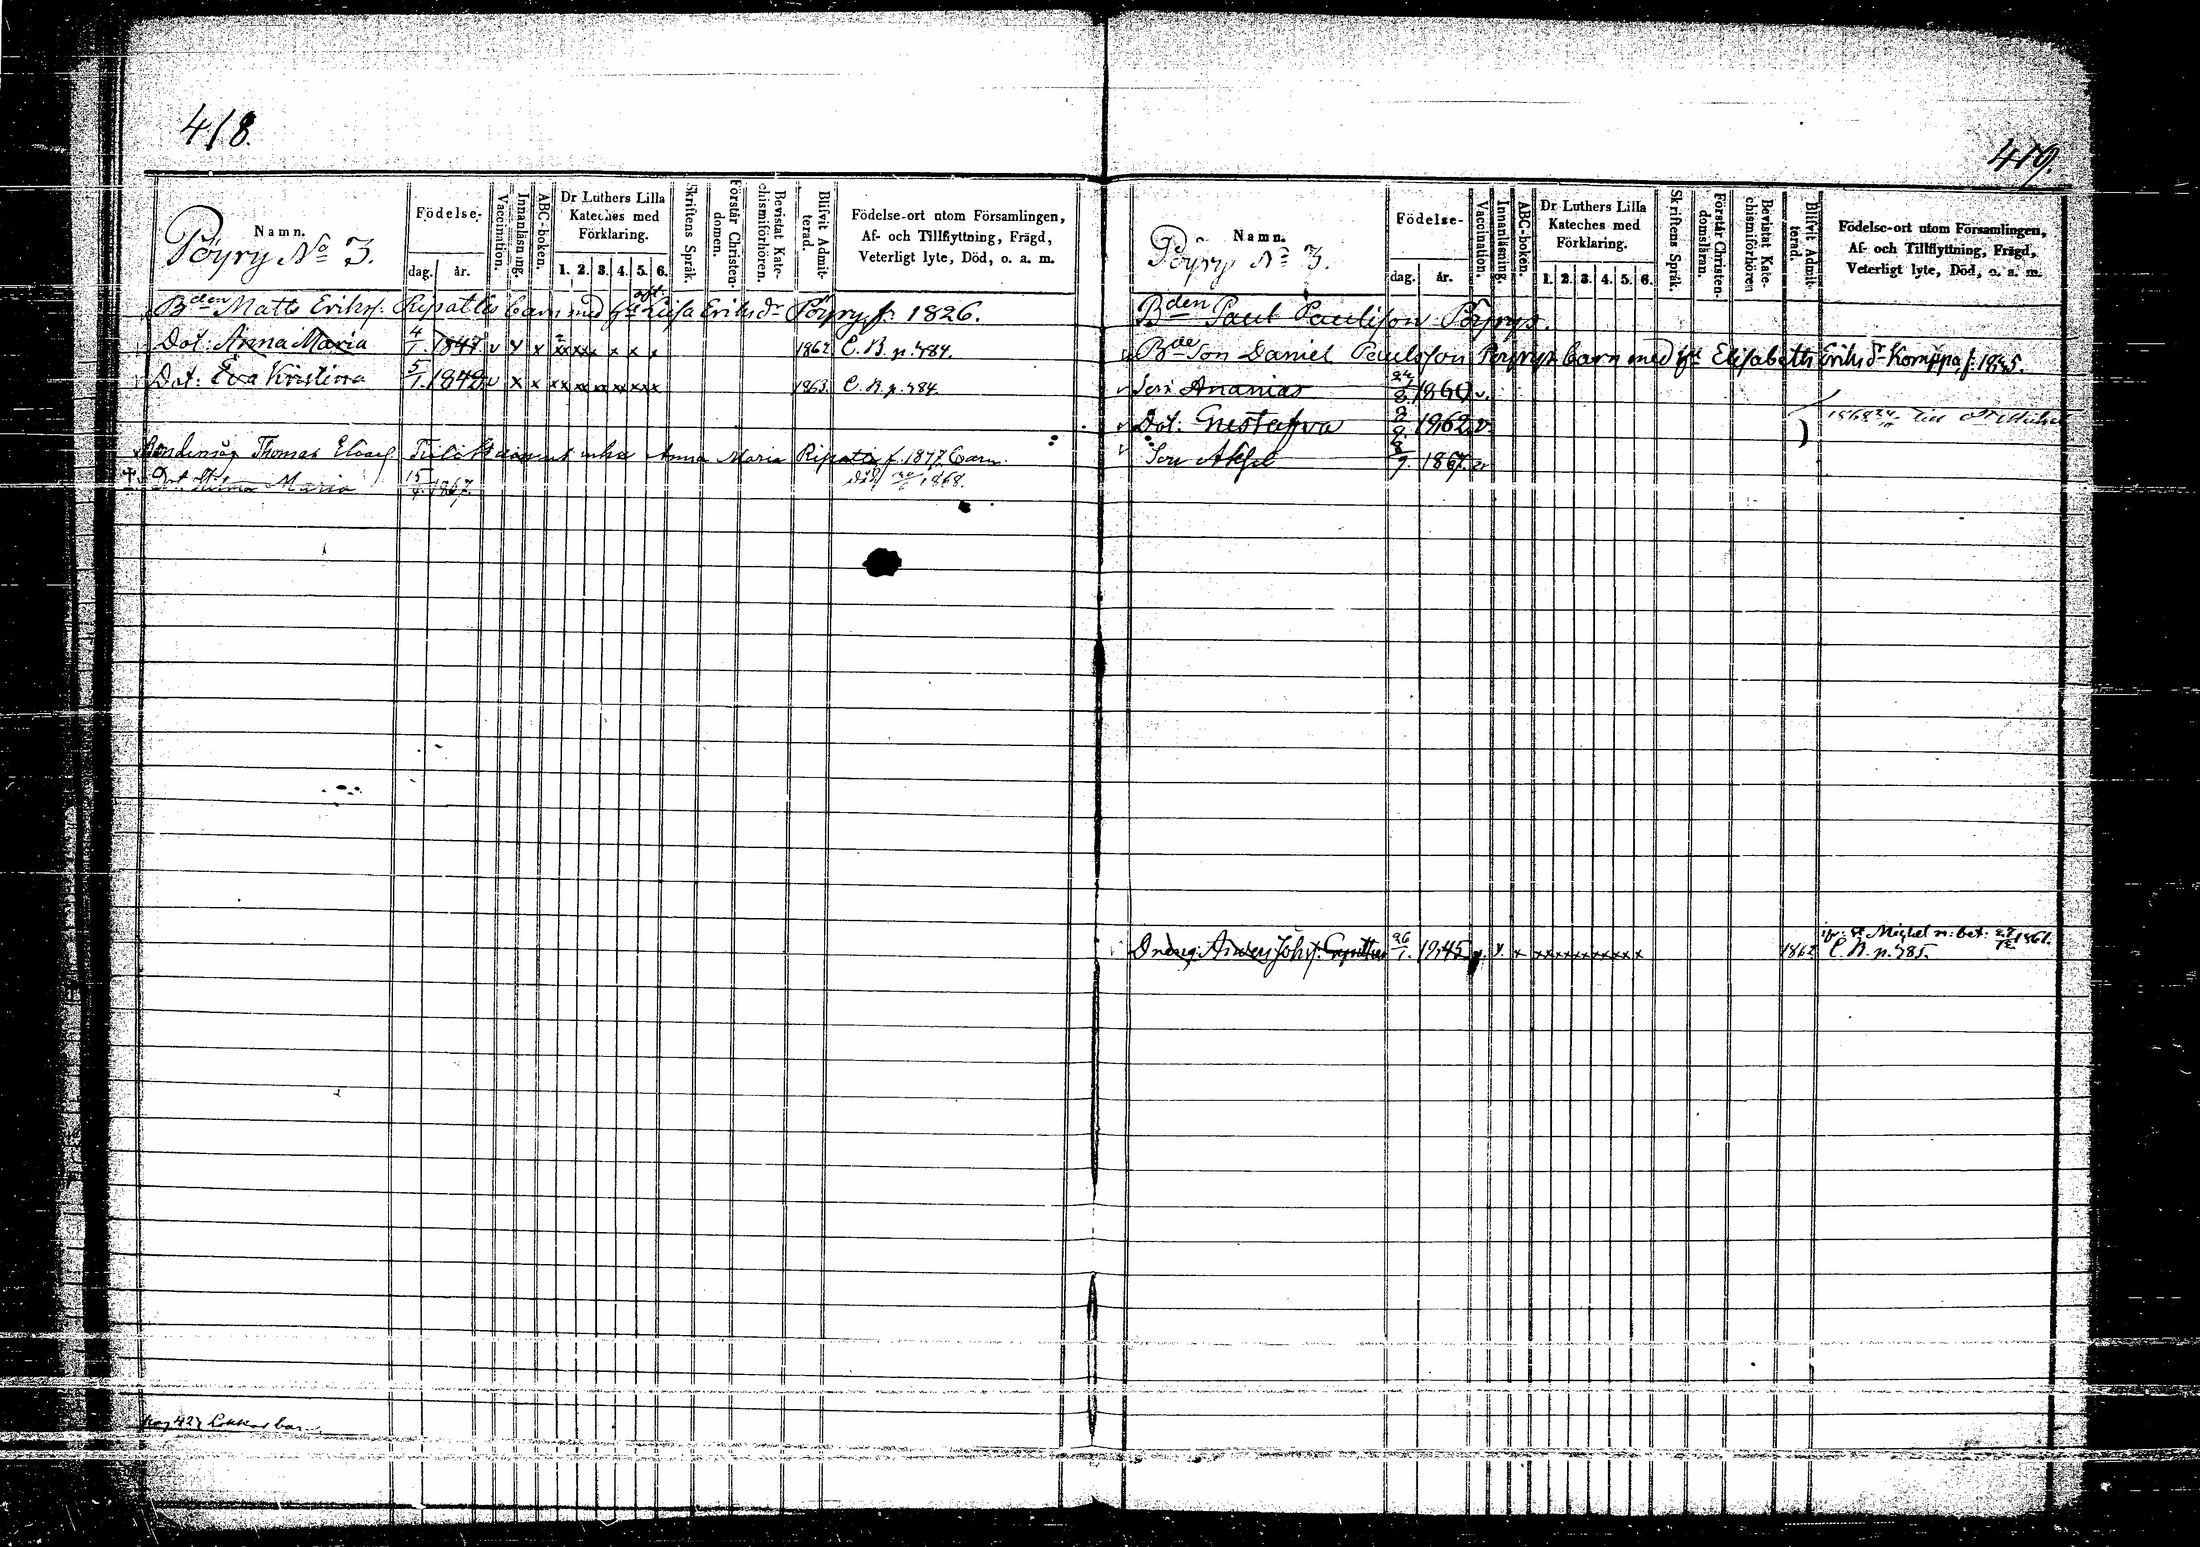 418.
Namn.
Pöyry No 3.
Födelse-
dag. år.
Vaccination.
Innanläsning.
ABC-boken.
Dr Luthers Lilla Kateches med Förklaring.
1. 2. 3. 4. 5. 6.
Skriftens Språk.
Förstår Christen-
domen.
Bevistat Kate-
chismiförhören.
Blifvit Admit-
terad.
Födelse-ort utom Församlingen,
Af- och Tillflyttning, Frägd,
Veterligt lyte, Död, o. a. m.
Bden Matts Eriksf. Ripattis barn med Luisa Eriksdr Pöyry f. 1826.
Dot: Anna Maria 4/1. 1847. v v x xxxxx x x x 1862 C. B. p. 484.
Dot: Eva Kristina 5/1. 1848 v x x xx xx xx xxxx 1863. C. B. p. 484.
Thomas Anna Maria Ripatti f. 1847 barn
Dot Maria 15 1867. död 1868.
419.
Namn.
Pöyry No 3.
Födelse-
dag. år.
Vaccination.
Innanläsning.
ABC-boken.
Dr Luthers Lilla
Kateches med
Förklaring.
1. 2. 3. 4. 5. 6.
Skriftens Språk.
Förstår Christen-
domsläran.
Bevistat Kate-
chismiförhören
Blifvit Admit-
terad.
Födelse-ort utom Församlingen,
Af- och Tillflyttning, Frägd,
Veterligt lyte, Död, o. a. m.
Bden Paul Paulsson Pöyrys.
Bde Son Daniel Paulsson Pöyrys barn med Elisabeth Eriksdr Komppa f. 1835.
Son Ananias 1860 v.
Dot: Gustafva 1862 v.
Son Aksel 1867. v
1868 till St Michel
fr. St Michel m. bet. 1861.
Dräng: Anders Johsf. 26/1. 1845. v. v. x xxxxxxxxxx x 1862 C. B. p. 485.
pag 427 barn